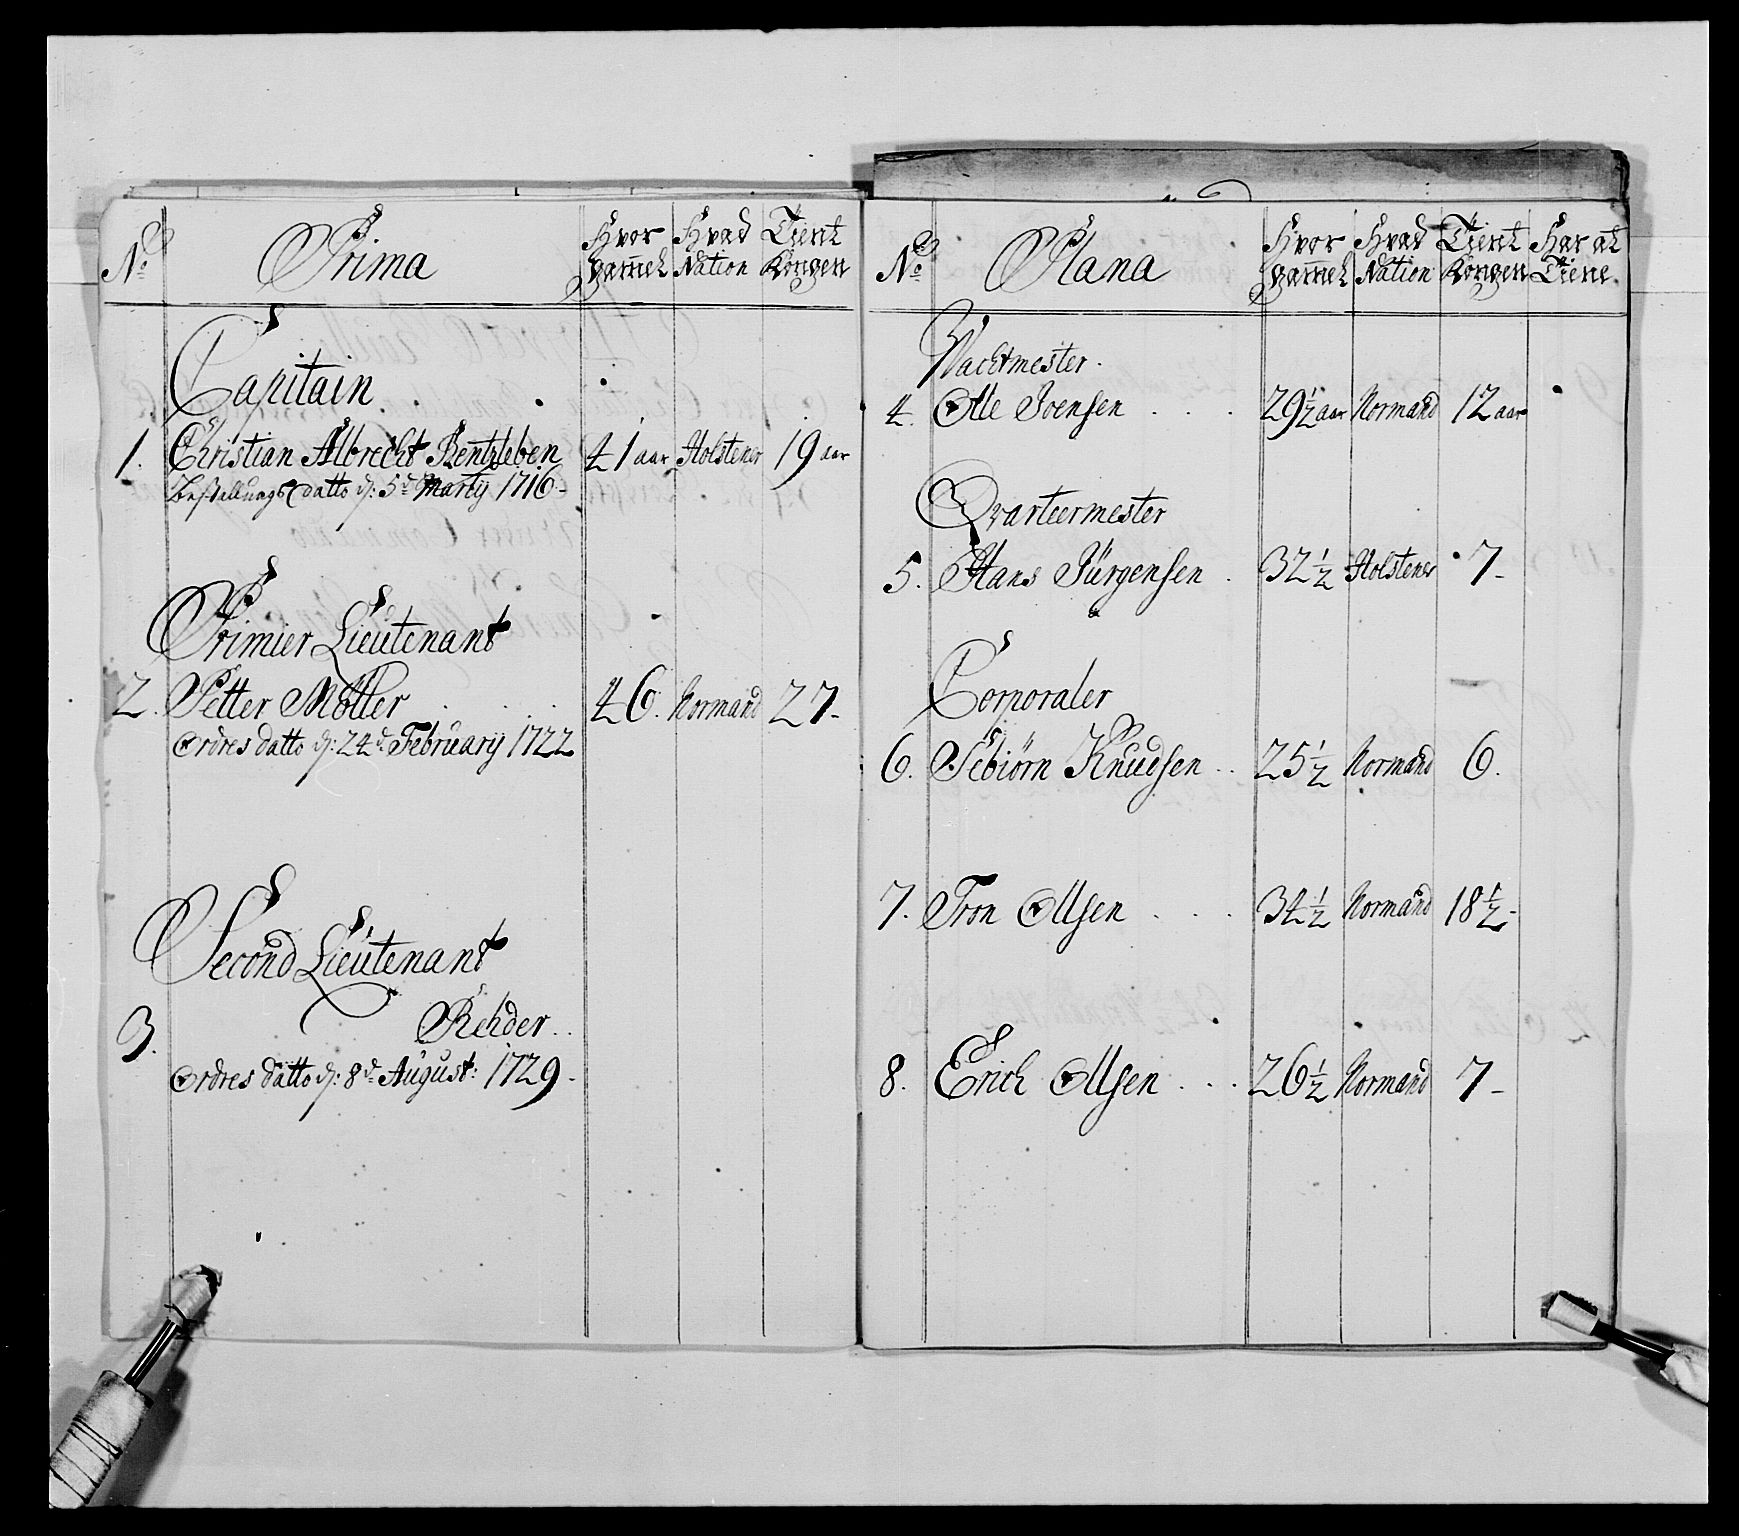 No Prima Hvor gammel Hvad Nation Tient Kongen
Capitain
1. Christian Albrecht Bentzleben 41 aar Holstener 19 aar
Bestallungs datto d: 5te Martij 1716 -
Primier Lieutenant
2. Petter Møller 46. Normand 27 -
Ordres datto d: 24de February 1722
Second Lieutenant
3. Rehder ..
Ordres datto d: 8de August: 1729 -
No Plana Hvor gammel Hvad Nation Tient Kongen Har at Tiene.
Wachtmester.
4. Olle Joensen . . . 29 1/2 aar Normand 12 aar
Qvarteermester
5. Hans Jürgensen . 32 1/2 Holstener 7 -
Corporaler
6. Sebiörn Knudsen .. 25 1/2 Normand 6.
7. Tron Ollsen . . . 34 1/2 Normand 18 1/2 -
8. Erich Ollsen . . . 26 1/2 Normand 7 -